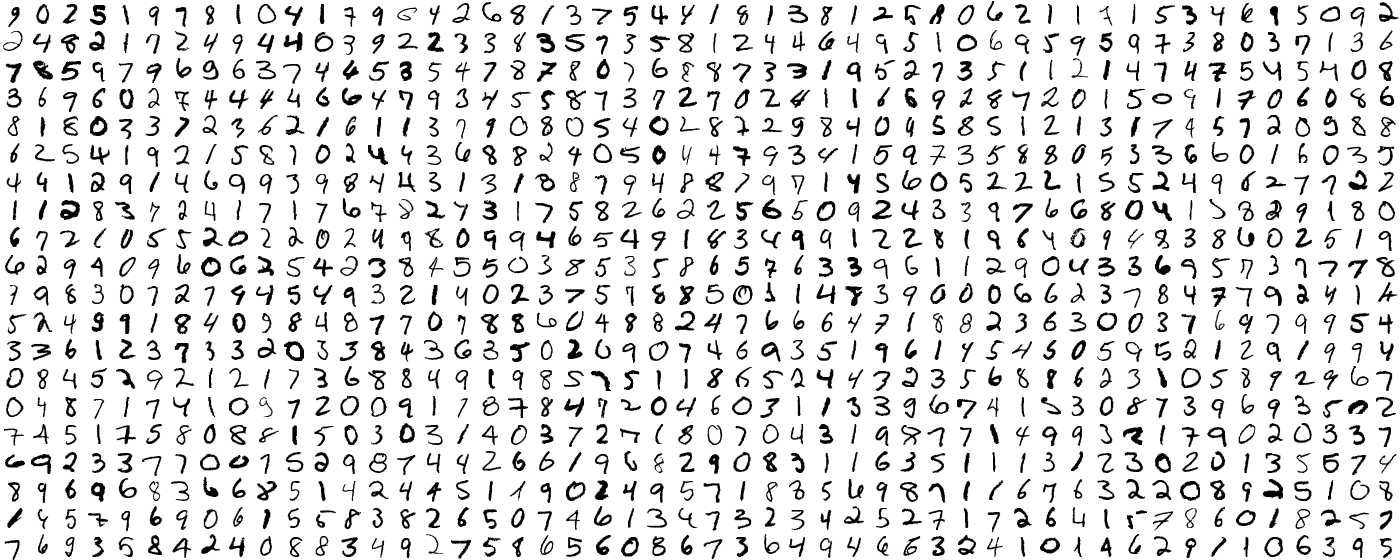 9 0 2 5 1 9 7 8 1 0 4 1 7 9 6 4 2 6 8 1 3 7 5 4 4 1 8 1 3 8 1 2 5 8 0 6 2 1 1 7 1 5 3 4 6 9 5 0 9 2
2 4 8 2 1 7 2 4 9 4 4 0 3 9 2 2 2 3 3 8 3 5 7 3 5 8 1 2 4 4 6 4 9 5 1 0 6 9 5 9 5 9 7 3 8 0 3 7 1 3 6
7 8 5 9 7 9 6 9 6 3 7 4 4 5 3 5 4 7 8 7 8 0 7 6 8 8 7 3 3 1 9 5 2 7 3 5 1 1 2 1 4 7 4 7 5 4 5 4 0 8
3 6 9 6 0 2 7 4 4 4 4 6 6 4 7 9 3 4 5 5 8 7 3 7 2 7 0 2 4 1 1 6 6 9 2 8 7 2 0 1 5 0 9 1 7 0 6 0 8 6
8 1 8 0 3 3 7 2 3 6 2 1 6 1 1 3 7 9 0 8 0 5 4 0 2 8 7 2 9 8 4 0 9 5 8 5 1 2 1 3 1 7 4 5 7 2 0 9 8 8
6 2 5 4 1 9 2 1 5 8 7 0 2 4 4 3 6 8 8 2 4 0 5 0 4 4 7 9 3 4 1 5 9 7 3 5 8 8 0 5 3 3 6 6 0 1 6 0 3 5
4 4 1 2 9 1 4 6 9 9 3 9 8 4 4 3 1 3 1 8 8 7 9 4 8 8 7 9 7 1 4 5 6 0 5 2 2 2 1 5 5 2 4 9 6 2 7 7 2 2
1 1 2 8 3 7 2 4 1 7 1 7 6 7 8 2 7 3 1 7 5 8 2 6 2 2 5 6 5 0 9 2 4 3 3 9 7 6 6 8 0 4 1 5 8 2 9 1 8 0
6 7 2 1 0 5 5 2 0 2 2 0 2 4 9 8 0 9 9 4 6 5 4 9 1 8 3 4 9 9 1 2 2 8 1 9 6 4 0 9 4 8 3 8 6 0 2 5 1 9
6 2 9 4 0 9 6 0 6 2 5 4 2 3 8 4 5 5 0 3 8 5 3 5 8 6 5 7 6 3 3 9 6 1 1 2 9 0 4 3 3 6 9 5 7 3 7 7 7 8
7 9 8 3 0 7 2 7 9 4 5 4 9 3 2 1 4 0 2 3 7 5 7 8 8 5 0 3 1 4 8 3 9 0 0 0 6 6 2 3 7 8 4 7 7 9 2 4 1 4
5 2 4 9 9 1 8 4 0 9 8 4 8 7 7 0 7 8 8 6 0 4 8 8 2 4 7 6 6 6 4 7 1 8 8 2 3 6 3 0 0 3 7 6 9 7 9 9 5 4
3 3 6 1 2 3 7 3 3 2 0 3 3 8 4 3 6 3 5 0 2 6 9 0 7 4 6 9 3 5 1 9 6 1 4 5 4 5 0 5 9 5 2 1 2 9 1 9 9 4
0 8 4 5 2 9 2 1 2 1 7 3 6 8 8 4 9 1 9 8 5 7 5 1 1 8 6 5 2 4 4 3 2 3 5 6 8 8 6 2 3 1 0 5 8 9 2 9 6 7
0 4 8 7 1 7 4 1 0 9 7 2 0 0 9 1 7 8 7 8 4 7 2 0 4 6 0 3 1 1 3 3 9 6 7 4 1 5 3 0 8 7 3 9 6 9 3 5 0 2
7 4 5 1 7 5 8 0 8 8 1 5 0 3 0 3 1 4 0 3 7 2 7 1 8 0 7 0 4 3 1 9 8 7 7 1 4 9 9 3 2 1 7 9 0 2 0 3 3 7
6 9 2 3 3 7 7 0 0 7 5 2 9 8 7 4 4 2 6 6 1 9 6 8 2 9 0 8 3 1 1 6 3 5 1 1 1 3 1 2 3 0 2 0 1 3 5 5 7 4
8 9 6 9 6 8 3 6 6 8 5 1 4 2 4 4 5 1 1 9 0 2 4 9 5 7 1 8 8 5 6 9 8 7 1 1 6 7 6 3 2 2 0 8 9 2 5 1 0 8
1 4 5 7 9 6 9 0 6 1 5 5 8 3 8 2 6 5 0 7 4 6 1 3 4 7 3 2 3 4 2 5 2 7 1 7 2 6 4 1 5 7 8 6 0 1 8 2 5 7
7 6 9 3 5 8 4 2 4 0 8 8 3 4 9 2 7 5 8 6 5 6 0 8 6 7 3 6 4 9 4 6 6 3 2 4 1 0 1 4 6 2 9 1 1 0 6 3 9 5